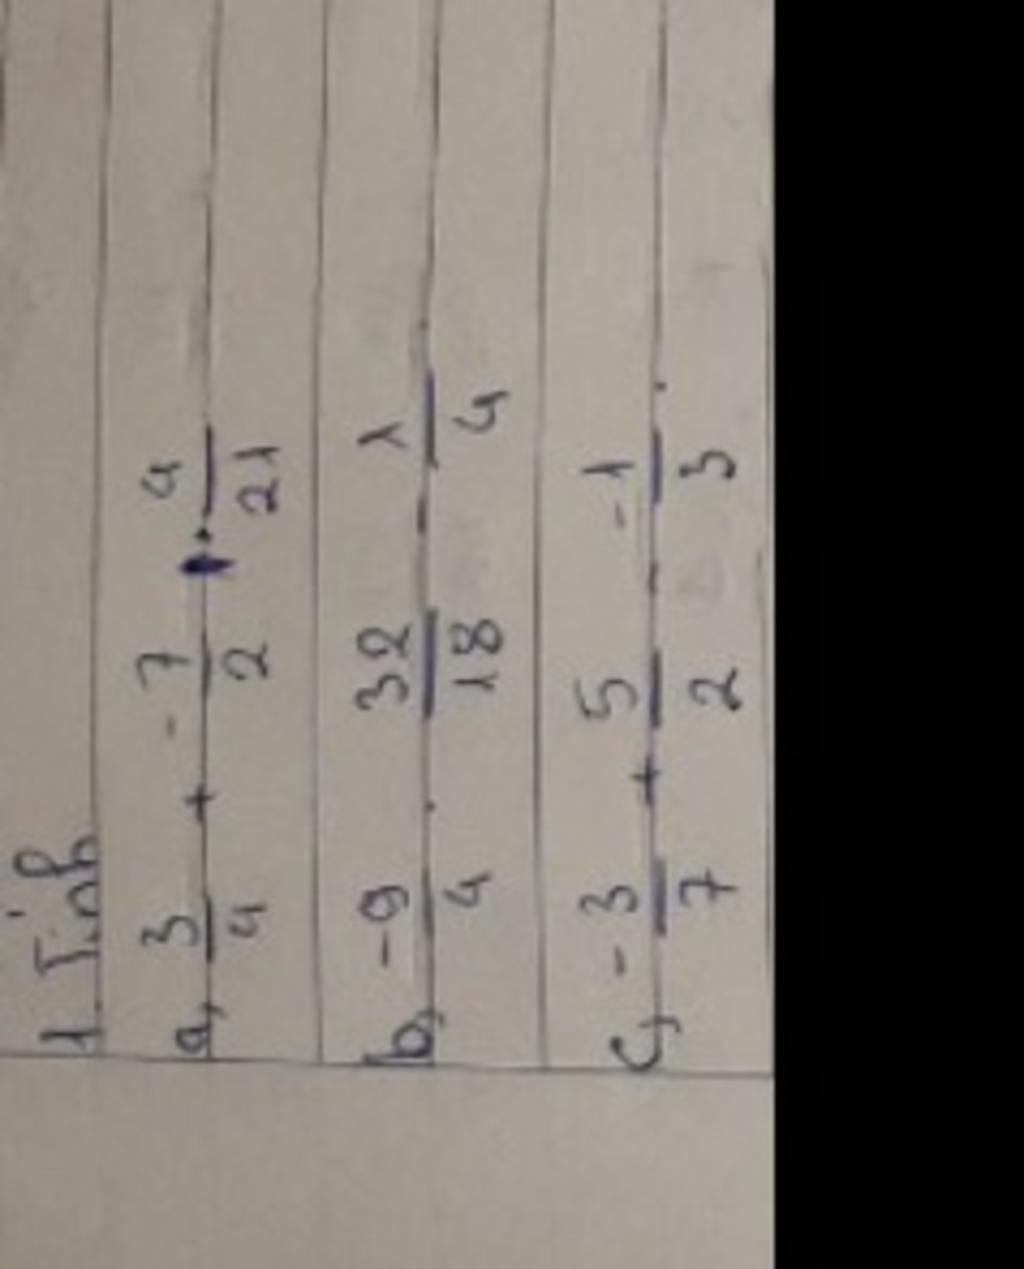 1. Tính
a, 3/4 + -7/2 . 4/21
b, -9/4 . 32/18 - 1/4
c, -3/7 + 5/2 . -1/3 .